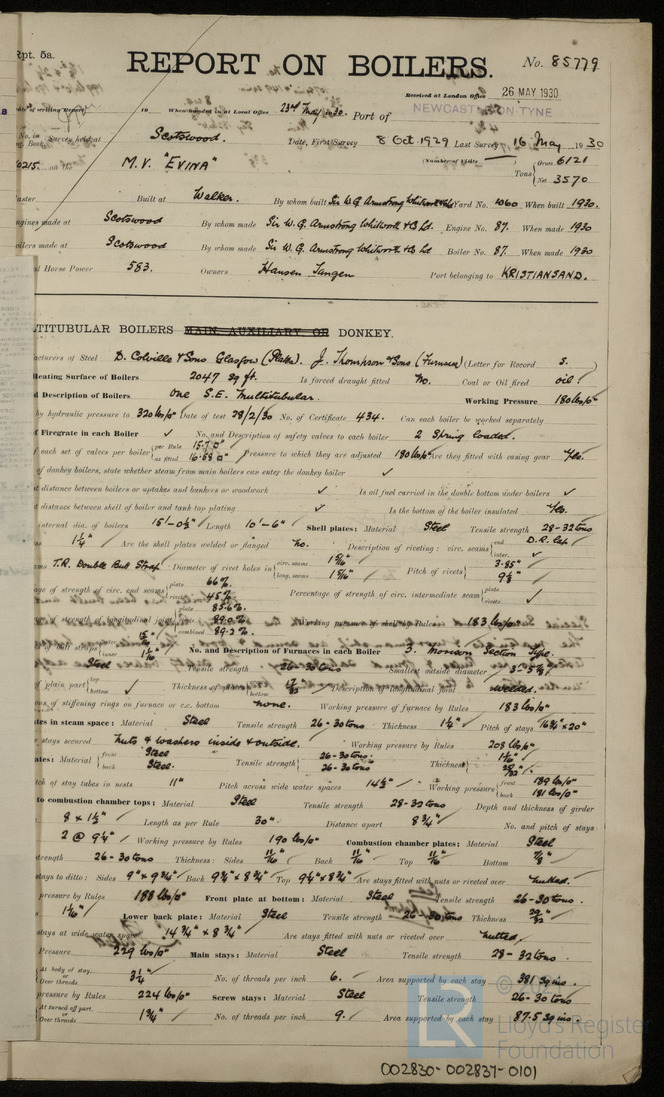 Rpt. 5a.
REPORT ON BOILERS.
No. 85779
Received at London Office 26 MAY 1930
When handed in at Local Office 23rd May 1930. Port of NEWCASTLE-ON-TYNE
No. in Survey held at Scotswood. Date, First Survey 8 Oct 1929 Last Survey 16 May 1930
on M.V. "EVINA" (Number of Visits ) Tons Gross 6121 Net 3570
Built at Walker. By whom built Sir W. G. Armstrong Whitworth & Co Ltd Yard No. 1060 When built 1930.
Engines made at Scotswood By whom made Sir W. G. Armstrong Whitworth & Co Ltd. Engine No. 87. When made 1930
Boilers made at Scotswood By whom made Sir W. G. Armstrong Whitworth & Co Ltd Boiler No. 87. When made 1930
Horse Power 583. Owners Hansen Tangen Port belonging to KRISTIANSAND.
TITUBULAR BOILERS MAIN, AUXILIARY, OR DONKEY.
acturers of Steel D. Colville & Sons Glasgow (Plates). J. Thompson & Sons (Furnaces) (Letter for Record S. )
Heating Surface of Boilers 2047 sq ft. Is forced draught fitted No. Coal or Oil fired oil
d Description of Boilers One S.E. Multitubular. Working Pressure 180 lbs/□"
by hydraulic pressure to 320 lbs/□" Date of test 28/2/30 No. of Certificate 434. Can each boiler be worked separately
f Firegrate in each Boiler ✓ No. and Description of safety valves to each boiler 2 Spring loaded.
f each set of valves per boiler per Rule 15.70" as fitted 16.58□" Pressure to which they are adjusted 180 lbs/□" Are they fitted with easing gear Yes.
of donkey boilers, state whether steam from main boilers can enter the donkey boiler ✓
t distance between boilers or uptakes and bunkers or woodwork ✓ Is oil fuel carried in the double bottom under boilers ✓
t distance between shell of boiler and tank top plating ✓ Is the bottom of the boiler insulated Yes.
nternal dia. of boilers 15'-0½" Length 10'-6" Shell plates: Material Steel Tensile strength 28-32 tons
1¼" Are the shell plates welded or flanged No. Description of riveting: circ. seams end D.R. lap inter. ✓
T.R. Double Butt Strap Diameter of rivet holes in circ. seams 1 5/16" long. seams 1 5/16" Pitch of rivets 3.85" 9½"
age of strength of circ. end seams plate 66%. rivets 45%. Percentage of strength of circ. intermediate seam plate rivets ✓
strength of longitudinal joint plate 85.6%. rivets 89.0%. combined 89.2%. Working pressure of shell by Rules 183 lbs/□"
No. and Description of Furnaces in each Boiler 3. Morison Section Type.
Steel Tensile strength 26-30 tons Smallest outside diameter
of plain part top bottom ✓ Thickness of bottom 17/32" Description of longitudinal joint welded.
ons of stiffening rings on furnace or c.c. bottom none. Working pressure of furnace by Rules 183 lbs/□"
ates in steam space: Material Steel Tensile strength 26-30 tons Thickness 1¼" Pitch of stays 16¾" x 20"
stays secured Nuts & washers inside & outside. Working pressure by Rules 208 lbs/□"
ates: Material front Steel back Steel. Tensile strength 26-30 tons 26-30 tons Thickness
tch of stay tubes in nests 11" Pitch across wide water spaces 14½" Working pressure front 189 lbs/□" back 181 lbs/□"
to combustion chamber tops: Material Steel Tensile strength 28-30 tons Depth and thickness of girder
8 x 1½" Length as per Rule 30" Distance apart 8¾" No. and pitch of stays
2 @ 9¼" Working pressure by Rules 190 lbs/□" Combustion chamber plates: Material Steel
trength 26-30 tons Thickness: Sides 11/16" Back 11/16" Top 11/16" Bottom 7/8"
stays to ditto: Sides 9" x 9¾" Back 9¾" x 8¾" Top 9¼" x 8¾" Are stays fitted with nuts or riveted over nutted.
pressure by Rules 188 lbs/□" Front plate at bottom: Material Steel Tensile strength 26-30 tons.
Lower back plate: Material Steel Tensile strength 26-30 tons Thickness
stays at wide water space 14¾" x 8¾" Are stays fitted with nuts or riveted over nutted
Pressure 229 lbs/□" Main stays: Material Steel Tensile strength 28-32 tons.
At body of stay, or Over threads 3¼" No. of threads per inch 6. Area supported by each stay 381 sq ins.
pressure by Rules 224 lbs/□" Screw stays: Material Steel Tensile strength 26-30 tons
At turned off part, or Over threads 1¾" No. of threads per inch 9. Area supported by each stay 87.5 sq ins.
LR
Lloyd's Register
Foundation
002830-002837-0101